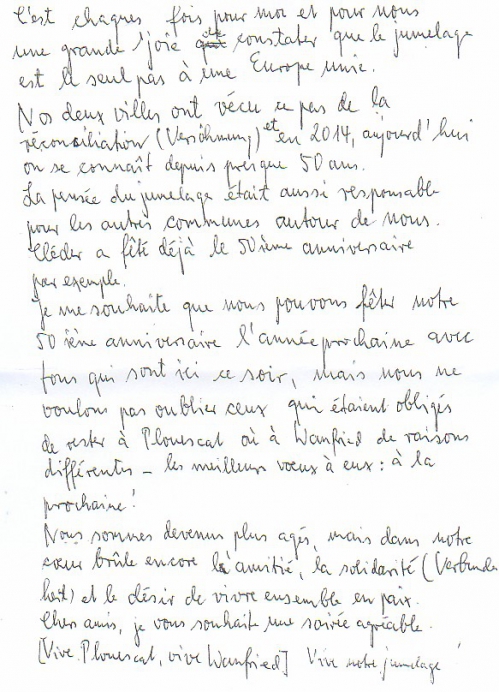 C'est chaques fois pour moi et pour nous
une grande joie de constater que le jumelage
est le seul pas à une Europe unie.
Nos deux villes ont vécu ce pas de la
réconciliation (Versöhnung) et en 2014, aujourd'hui
on se connaît depuis presque 50 ans.
La pensée du jumelage était aussi responsable
pour les autres communes autour de nous.
Cléder a fêté déjà le 50ième anniversaire
par exemple.
Je me souhaite que nous pouvons fêter notre
50 ième anniversaire l'année prochaine avec
tous qui sont ici ce soir, mais nous ne
voulons pas oublier ceux qui étaient obligés
de rester à Plouescat où à Wanfried de raisons
différentes – les meilleurs vœux à eux : à la
prochaine !
Nous sommes devenus plus agés, mais dans notre
cœur brûle encore l'amitié, la solidarité (Verbunden
heit) et le désir de vivre ensemble en paix.
Cher amis, je vous souhaite une soirée agréable.
[Vive Plouescat, vive Wanfried] Vive notre jumelage !